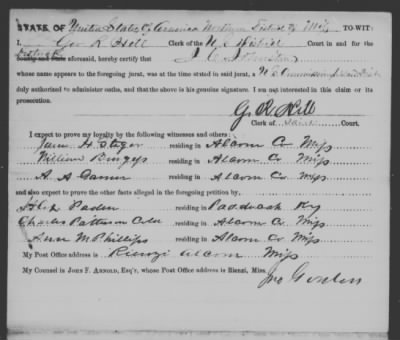 STATE OF United States Of America Northern District Of Miss TO-WIT:
I, Geo R Hill Clerk of the U S District Court in and for the
District
County and State aforesaid, hereby certify that
whose name appears to the foregoing jurat, was at the time stated in said jurat, U S Commissioner
duly authorized to administer oaths, and that the above is his genuine signature. I am not interested in this claim or its
prosecution.
G R Hill
Clerk of said Court.
I expect to prove my loyalty by the following witnesses and others:
James H Stager residing in Alcorn Co Miss
William Burgess residing in Alcorn Co Miss
A. A Garner residing in Alcorn Co Miss
and also expect to prove the other facts alleged in the foregoing petition by,
Paden residing in Paducah Ky
Charles Patterson Cold residing in Alcorn Co Miss
M Phillips residing in Alcorn Co Miss
My Post Office address is Rienzi Alcorn Miss
My Counsel is JOHN F. ARNOLD, Esq'r, whose Post Office address is Rienzi, Miss.
Jno Gordon